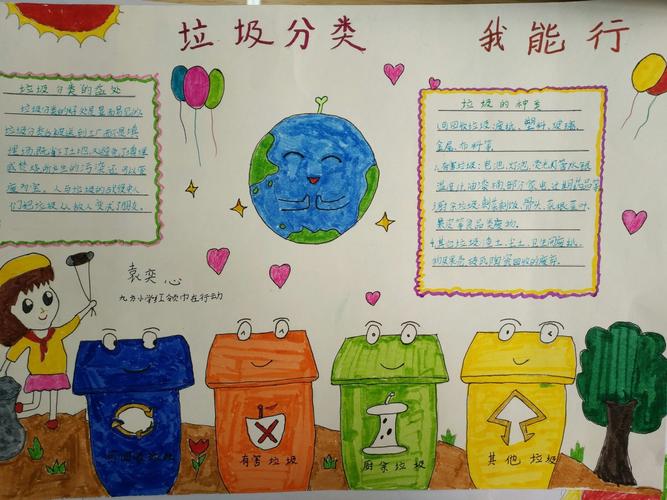 垃圾分类 我能行
垃圾分类的益处
垃圾分类的好处是显而易见的。
垃圾分类后被送到工厂而不是填
埋场,既省下土地,又避免了填埋
或焚烧所产生的污染,还可以变
废为宝。人与垃圾的战役中,人
们把垃圾从敌人变成了朋友。
垃圾的种类
1.可回收垃圾:废纸、塑料、玻璃、
金属、布料等。
2.有害垃圾:电池、灯泡、
过期药品等
3.厨余垃圾:剩菜剩饭、骨头、菜根菜叶、
果皮等食品类废物。
4.其他垃圾:渣土、卫生间废纸、
袁奕心
九方小学红领巾在行动
可回收垃圾
有害垃圾
厨余垃圾
其他垃圾